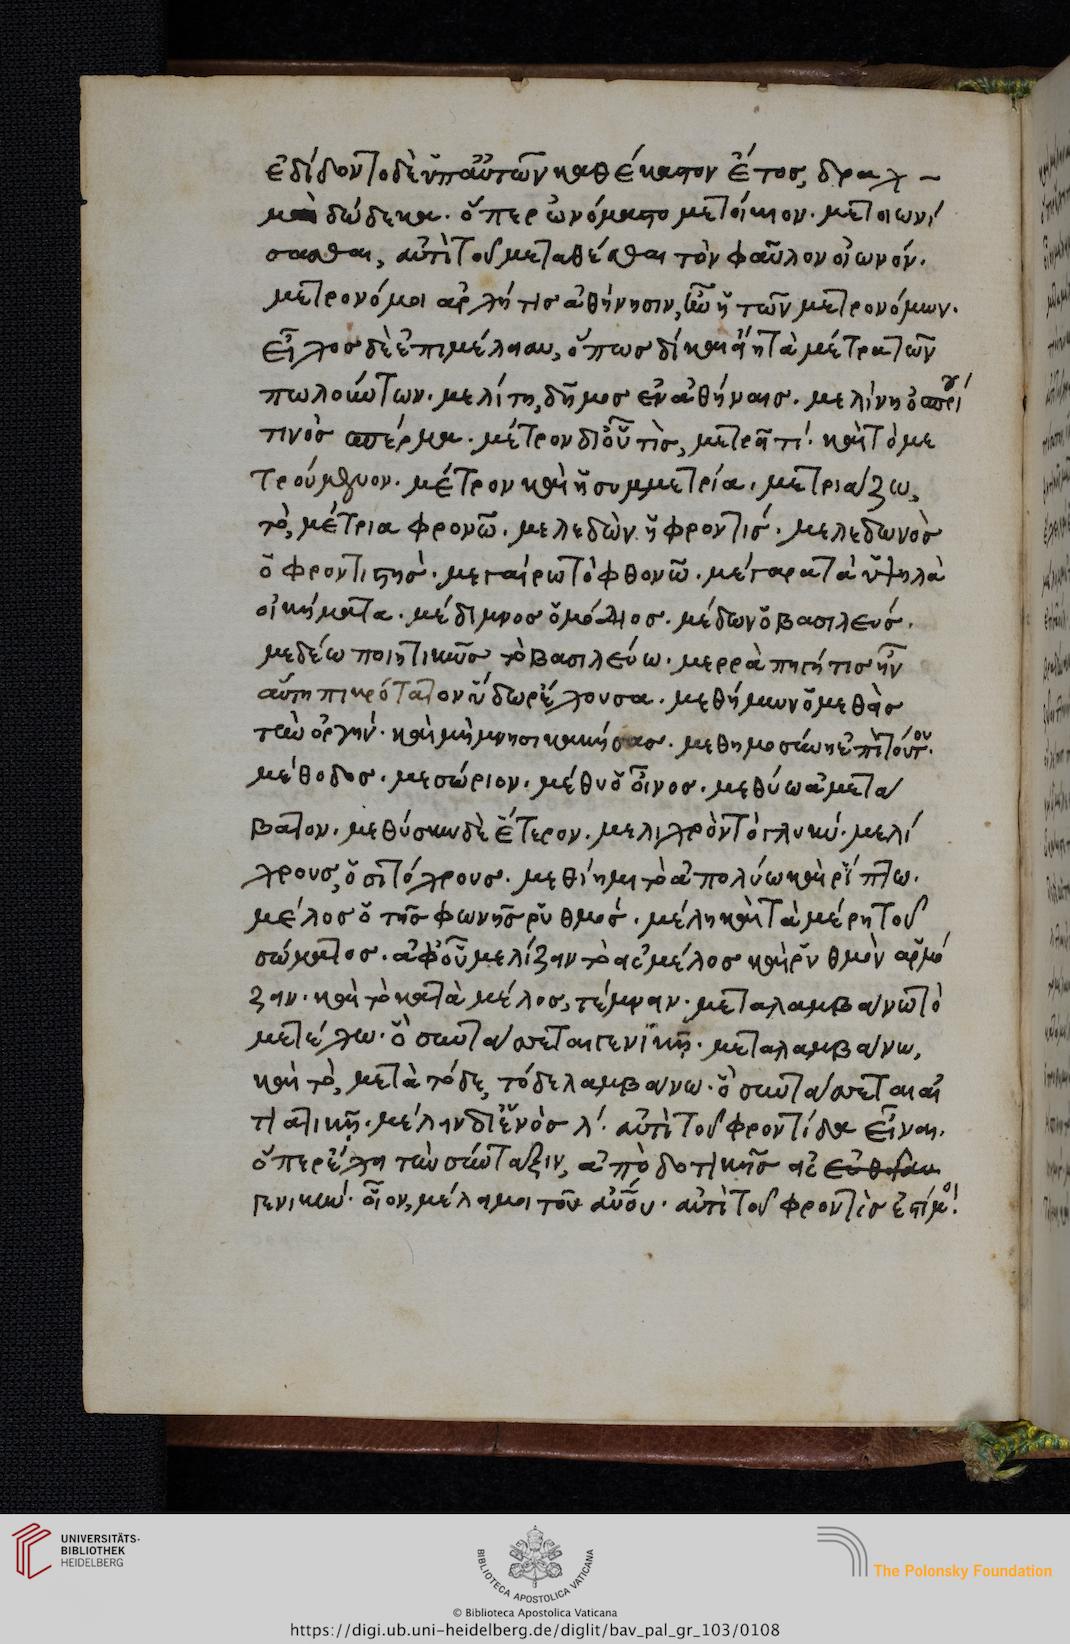 ἐδίδοντο δὲ ὑπ' αὐτῶν καθ' ἕκαστον ἔτος, δραχ
μαὶ δώδεκα· ὅπερ ὠνόμαστο μετοίκιον· μετοιωνί
σασθαι, ἀντὶ τοῦ μεταθέσθαι τὸν φαῦλον οἰωνόν·
μετρονόμοι ἀρχή τισ ἀθήνησιν, ἡ τῶν μετρονόμων·
εἶχος δὲ ἐπιμέλειαν, ὅπως δίκαια ᾖ τὰ μέτρα τῶν
πωλούντων· μελίτη, δῆμος ἐν ἀθήναις· μελίνη
τινὸς σπέρμα· μέτρον δι' οὗ τὶς, μετρᾶ τί· καὶ τὸ με
τρούμενον· μέτρον καὶ ἡ συμμετρία· μετριάζω,
τὸ, μέτρια φρονῶ· μελεδὼν ἡ φροντίς· μελεδωνὸς
ὁ φροντιστής· μεγαίρω τὸ φθονῶ· μέγαρα τὰ ὑψηλὰ
οἰκήματα· μέδιμνος ὁ μόδιος· μέδων ὁ βασιλεύς·
μεδέω ποιητικῶς τὸ βασιλεύω· μερρὰ πηγή τις ἦν
αὕτη πικρότατον ὕδωρ ἔχουσα· μεθήμων ὁ μεθεὶς
τὴν ὀργήν· καὶ μὴ μνησικακήσας· μεθημοσύνη ἐπὶ τούτου·
μέθοδος· μεσώριον· μέθυ ὁ οἶνος· μεθύω ἀμετά
βατον· μεθύσκω δὲ ἕτερον· μελιχρὸν τὸ γλυκύ· μελί
χρους, ὁ σιτόχρους· μεθίημι τὸ ἀπολύω καὶ ῥίπτω·
μέλος ὁ τῆς φωνῆς ῥυθμός· μέλη καὶ τὰ μέρη τοῦ
σώματος· ἀφ' οὗ μελίζειν τὸ εἰς μέλος καὶ ῥυθμὸν ἁρμό
ζειν· καὶ τὸ κατὰ μέλος, τέμνειν· μεταλαμβάνω τὸ
μετέχω· ὃ συντάσσεται γενικῇ· μεταλαμβάνω,
καὶ τὸ, μετὰ τόδε, τόδε λαμβάνω· ὃ συντάσσεται αἰ
τιατικῇ· μέλειν δι' ἑνὸς λ· ἀντὶ τοῦ φροντίδα εἶναι·
ὅπερ ἔχει τὴν σύνταξιν, ἀπὸ δοτικῆς εἰς
γενικήν· οἷον, μέλει μοι τοῦδε· ἀντὶ τοῦ φροντὶς ἐστί μοι
UNIVERSITÄTS-
BIBLIOTHEK
HEIDELBERG
BIBLIOTECA APOSTOLICA VATICANA
The Polonsky Foundation
© Biblioteca Apostolica Vaticana
https://digi.ub.uni-heidelberg.de/diglit/bav_pal_gr_103/0108